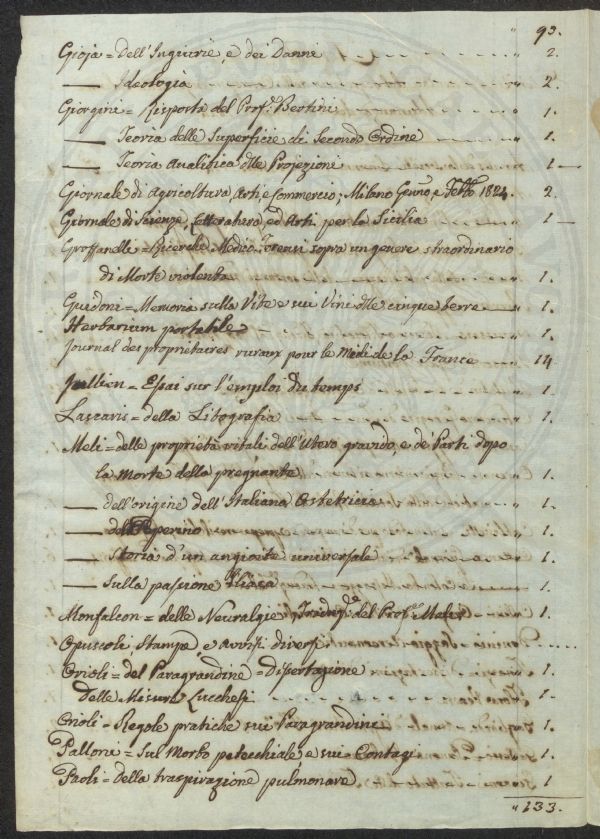 " 93.
Gioja = Dell'Ingiurie, e dei Danni " 2.
—— Ideologia " 2.
Giorgini = Risposta del Prof.r Bertini " 1.
—— Teoria delle Superficie di Secondo Ordine " 1.
—— Teoria Analitica delle Projezioni " 1.
Giornale di Agricoltura, Arti, e Commercio; Milano Genn.o, e Febb.o 1824. 2.
Giornale di Scienze, Letteratura, ed Arti per la Sicilia " 1.
Groffanelli = Ricerche Medico-Forensi sopra un genere straordinario
di Morte violenta " 1.
Guidoni = Memoria sulla Vite e sui Vini delle cinque terre " 1.
Herbarium portabile " 1.
Journal des propriétaires ruraux pour le Midi de la France " 14
Jullien = Essai sur l'emploi du temps " 1.
Lascaris = della Litografia " 1.
Meli = delle proprietà vitali dell'Utero gravido, e de' Parti dopo
la Morte della pregnante " 1.
—— dell'origine dell'Italiana Ostetricia " 1.
—— del Peperino " 1.
—— Storia d'un angioite universale " 1.
—— Sulla passione Iliaca " 1.
Monfalcon = delle Neuralgie, Traduz.e del Prof.re Meli " 1.
Opuscoli Stampe e avvisi diversi "
Orioli = del Paragrandine = Dissertazione " 1.
Delle Misure Lucchesi " 1.
Orioli = Regole pratiche sui Paragrandini " 1.
Palloni = Sul Morbo petecchiale e sui Contagi " 1.
Paoli = della traspirazione pulmonare " 1
" 133.